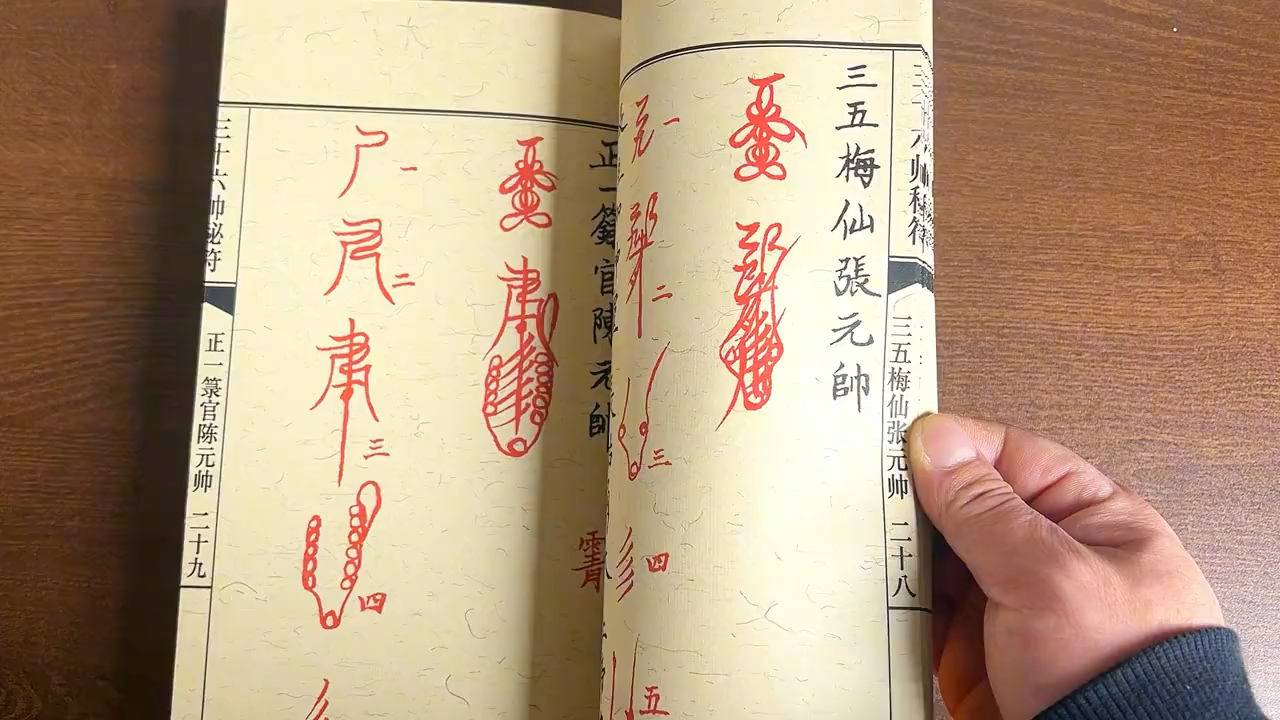 三十六帅秘符
三五梅仙张元帅 二十八
三五梅仙張元帥
一
二
三
四
五
正一籙官陳元帥
一
二
三
四
三十六帅秘符
正一箓官陈元帅 二十九